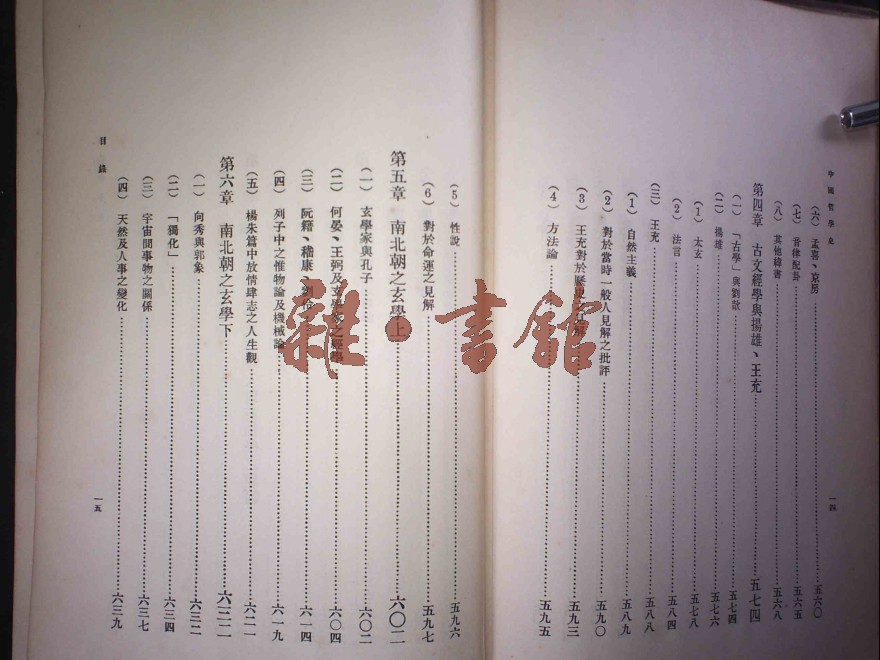 中國哲學史
(六) 孟喜、京房 五六〇
(七) 音律配卦 五六五
(八) 其他緯書 五六八
第四章 古文經學與揚雄、王充 五七四
(一) 「古學」與劉歆 五七四
(二) 揚雄 五七六
(1) 太玄 五七八
(2) 法言 五八四
(三) 王充 五八八
(1) 自然主義 五八九
(2) 對於當時一般人見解之批評 五九〇
(3) 王充對於歷史之見解 五九三
(4) 方法論 五九五
一四
(5) 性說 五九六
(6) 對於命運之見解 五九七
第五章 南北朝之玄學上 六〇二
(一) 玄學家與孔子 六〇二
(二) 何晏、王弼及玄學家之經學 六〇四
(三) 阮籍、嵇康、劉伶 六一四
(四) 列子中之惟物論及機械論 六一九
(五) 楊朱篇中放情肆志之人生觀 六二一
第六章 南北朝之玄學下 六三二
(一) 向秀與郭象 六三二
(二) 「獨化」 六三四
(三) 宇宙間事物之關係 六三七
(四) 天然及人事之變化 六三九
目錄
一五
雜·書館